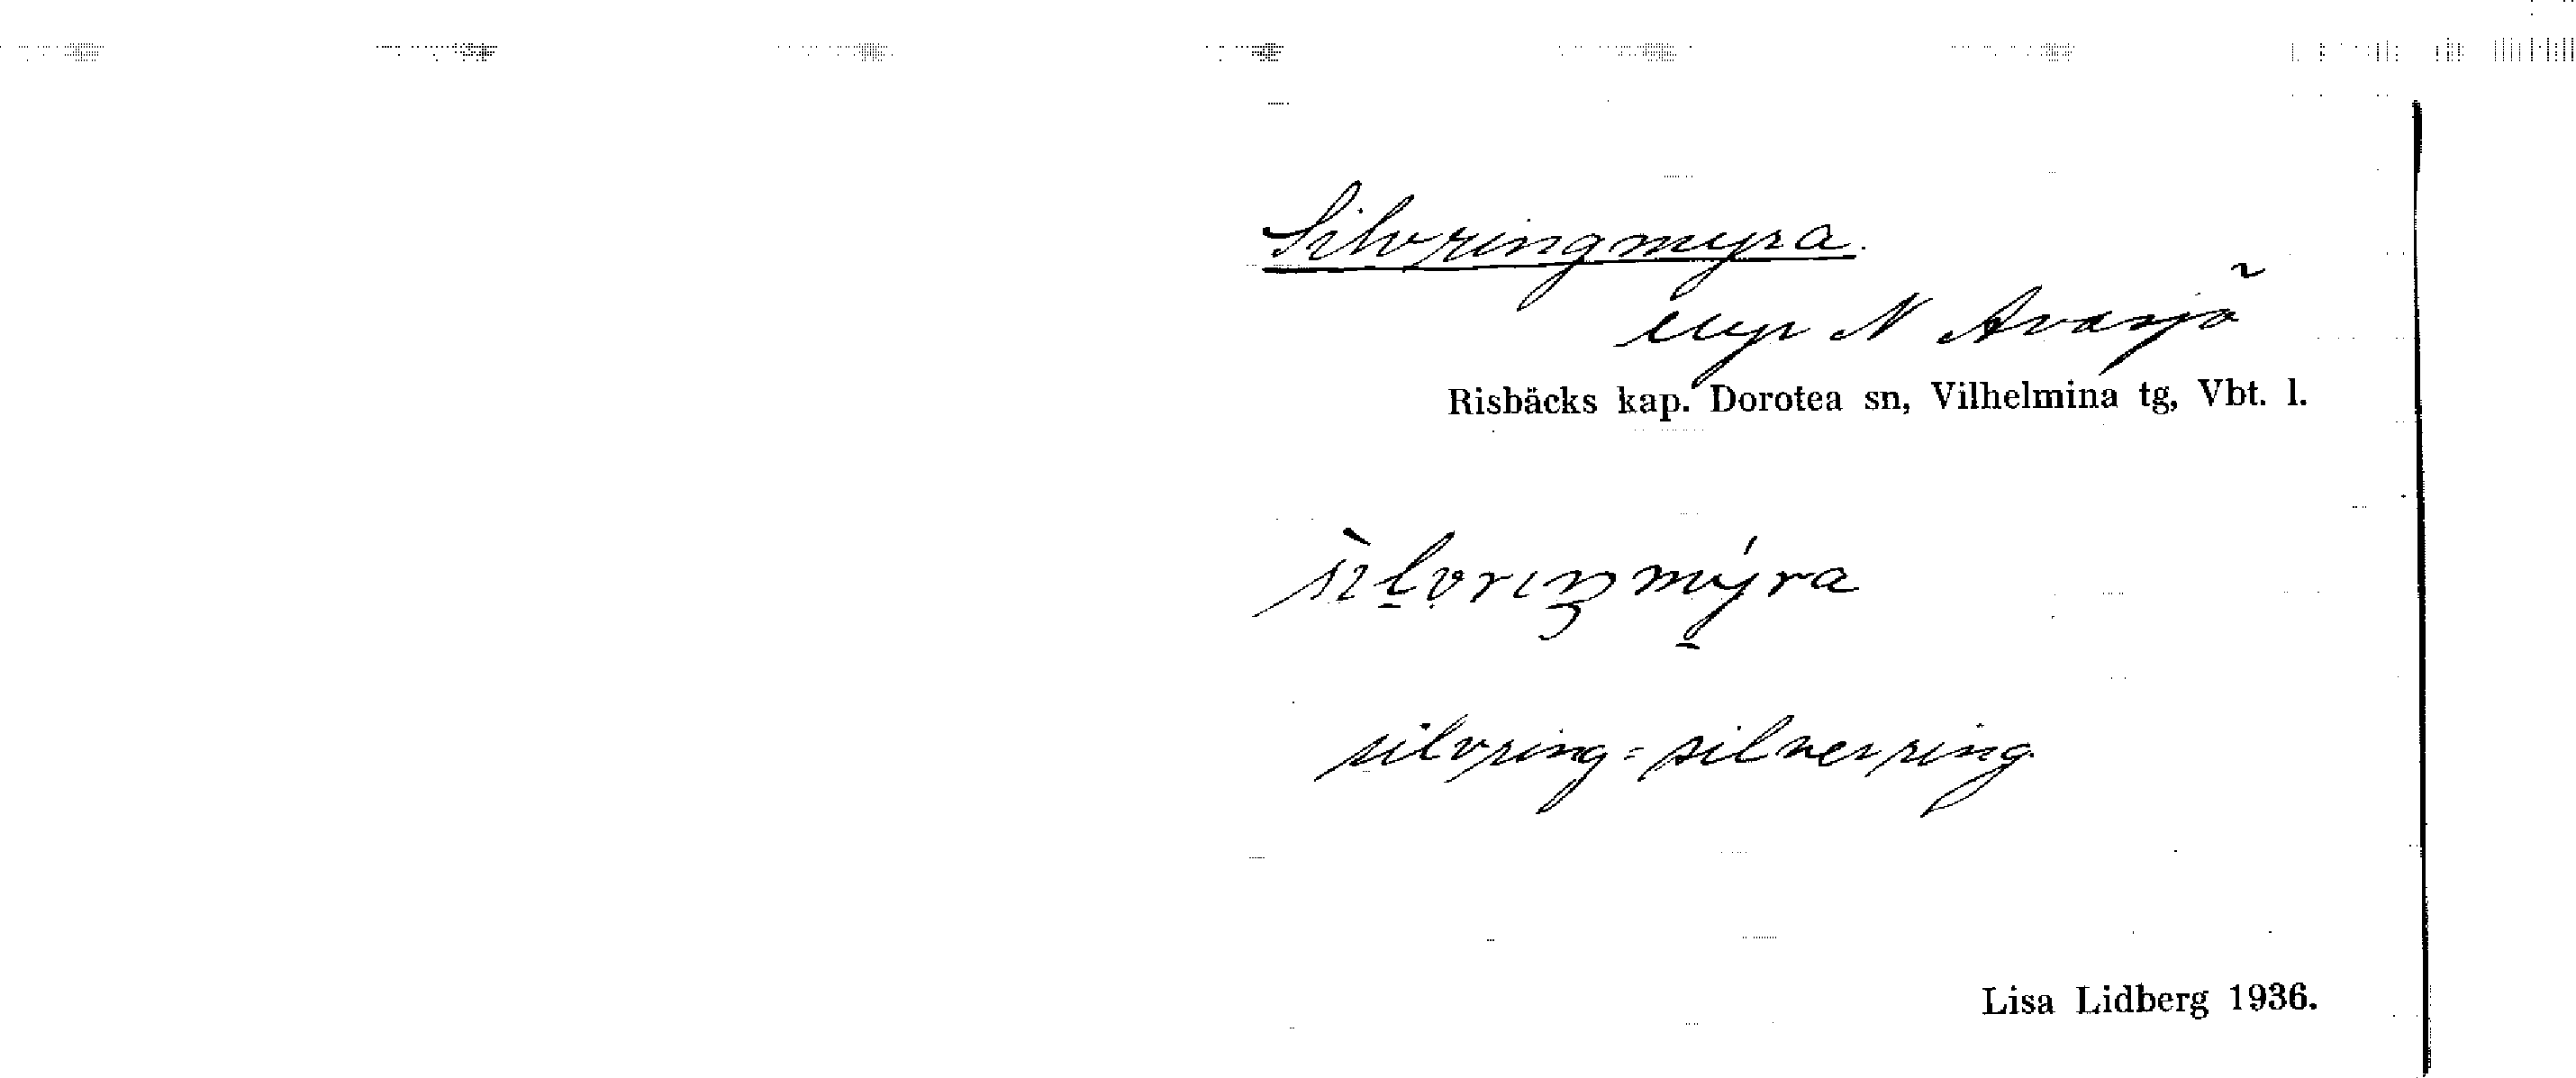 Silvringmyra.
myr N Avasjö
Risbäcks kap. Dorotea sn, Vilhelmina tg, Vbt. l.
silvring = silverring
Lisa Lidberg 1936.